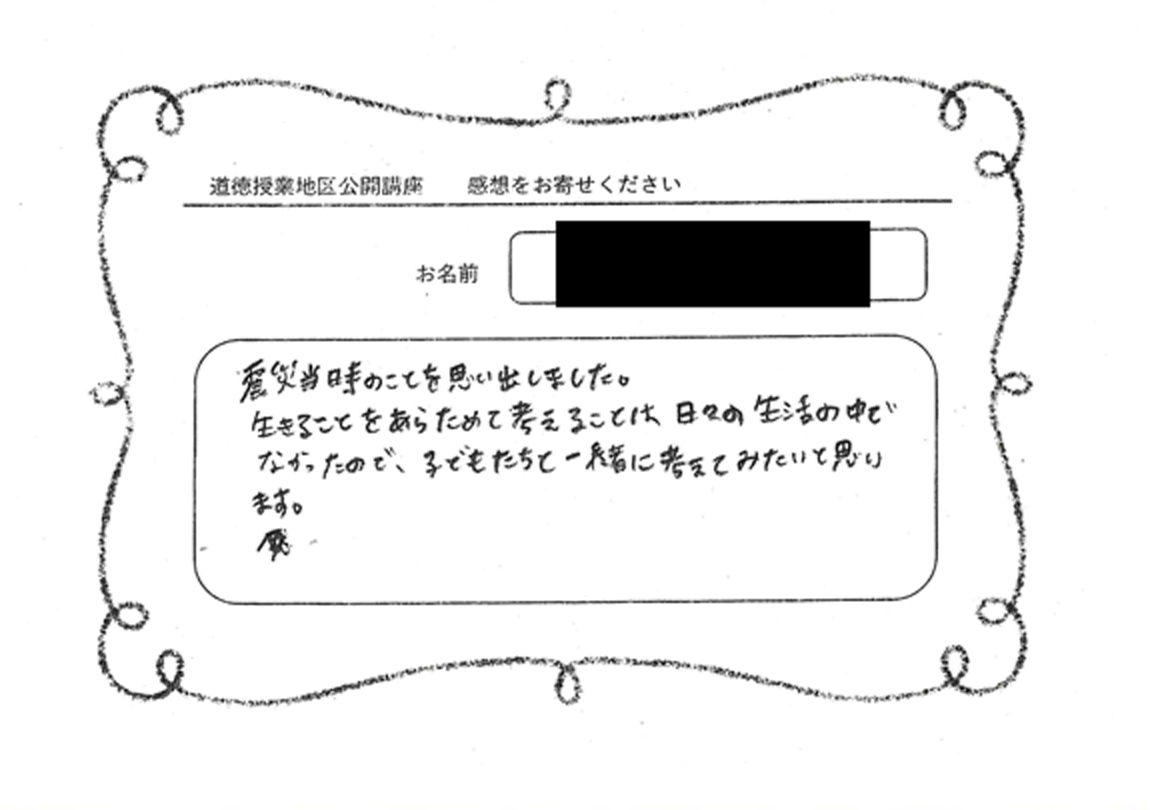 道徳授業地区公開講座　　感想をお寄せください
お名前
震災当時のことを思い出しました。
生きることをあらためて考えることは、日々の生活の中で
なかったので、子どもたちと一緒に考えてみたいと思い
ます。